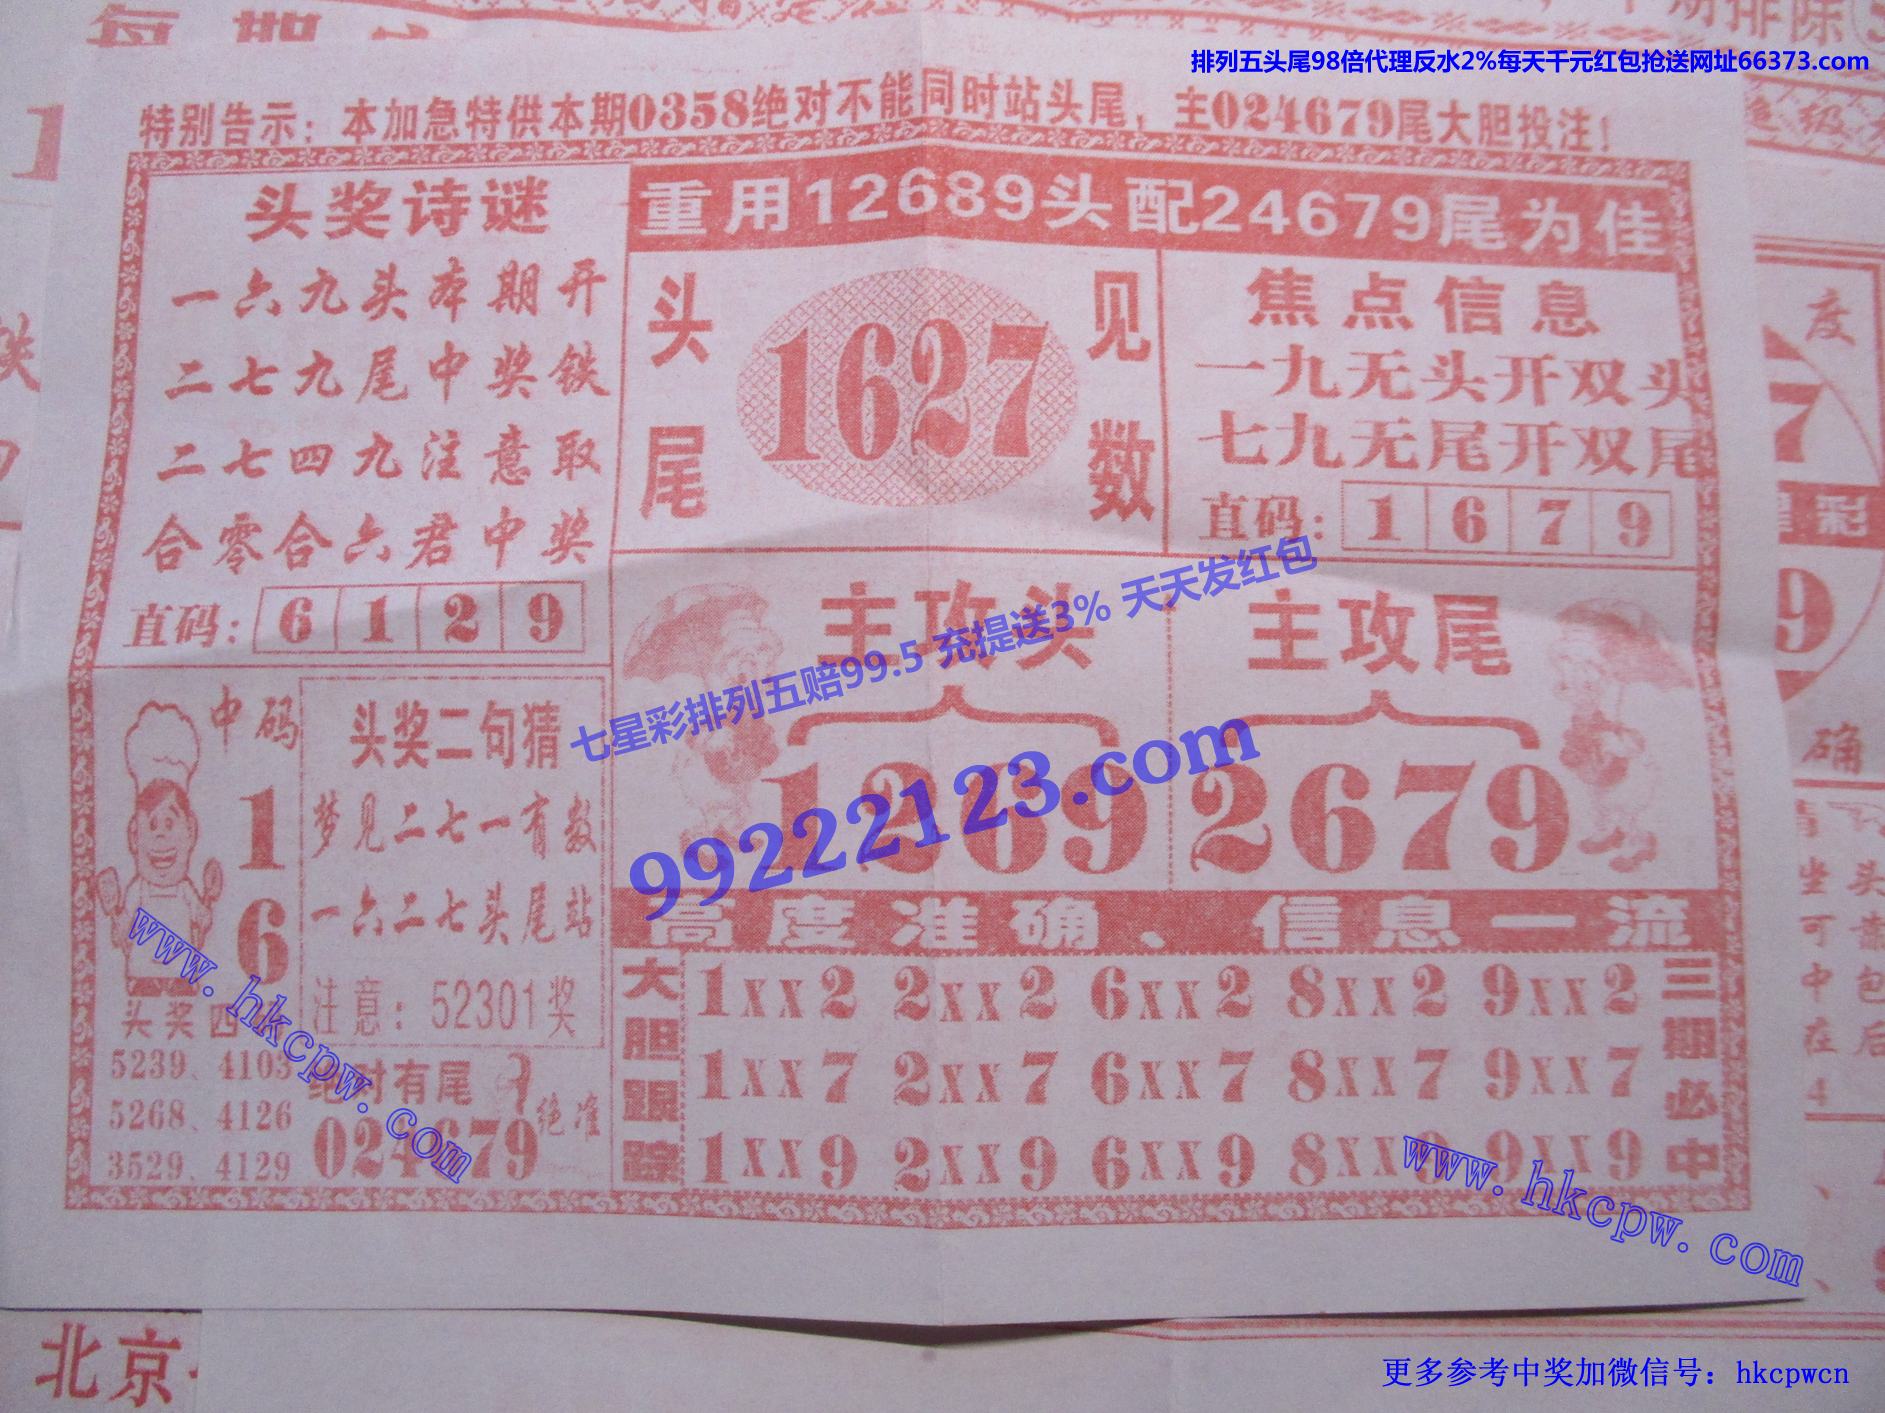 排列五头尾98倍代理反水2%每天千元红包抢送网址66373.com
特别告示：本加急特供本期0358绝对不能同时站头尾，主024679尾大胆投注！
头奖诗谜
一六九头本期开
二七九尾中奖铁
二七四九注意取
合零合六君中奖
直码：6 1 2 9
重用12689头配24679尾为佳
头尾
1627
见数
焦点信息
一九无头开双头
七九无尾开双尾
直码：1 6 7 9
中码
1
6
头奖四
5239、4103
5268、4126
3529、4129
头奖二句猜
梦见二七一有数
一六二七头尾站
注意：52301奖
绝对有尾
024679
绝准
主攻头
1269
主攻尾
2679
七星彩排列五赔99.5 充提送3% 天天发红包
99222123.com
高度准确、信息一流
大胆跟踪
1xx2 2xx2 6xx2 8xx2 9xx2
1xx7 2xx7 6xx7 8xx7 9xx7
1xx9 2xx9 6xx9 8xx9 9xx9
三期必中
www.hkcpw.com
www.hkcpw.com
度
确
北京
更多参考中奖加微信号：hkcpwcn